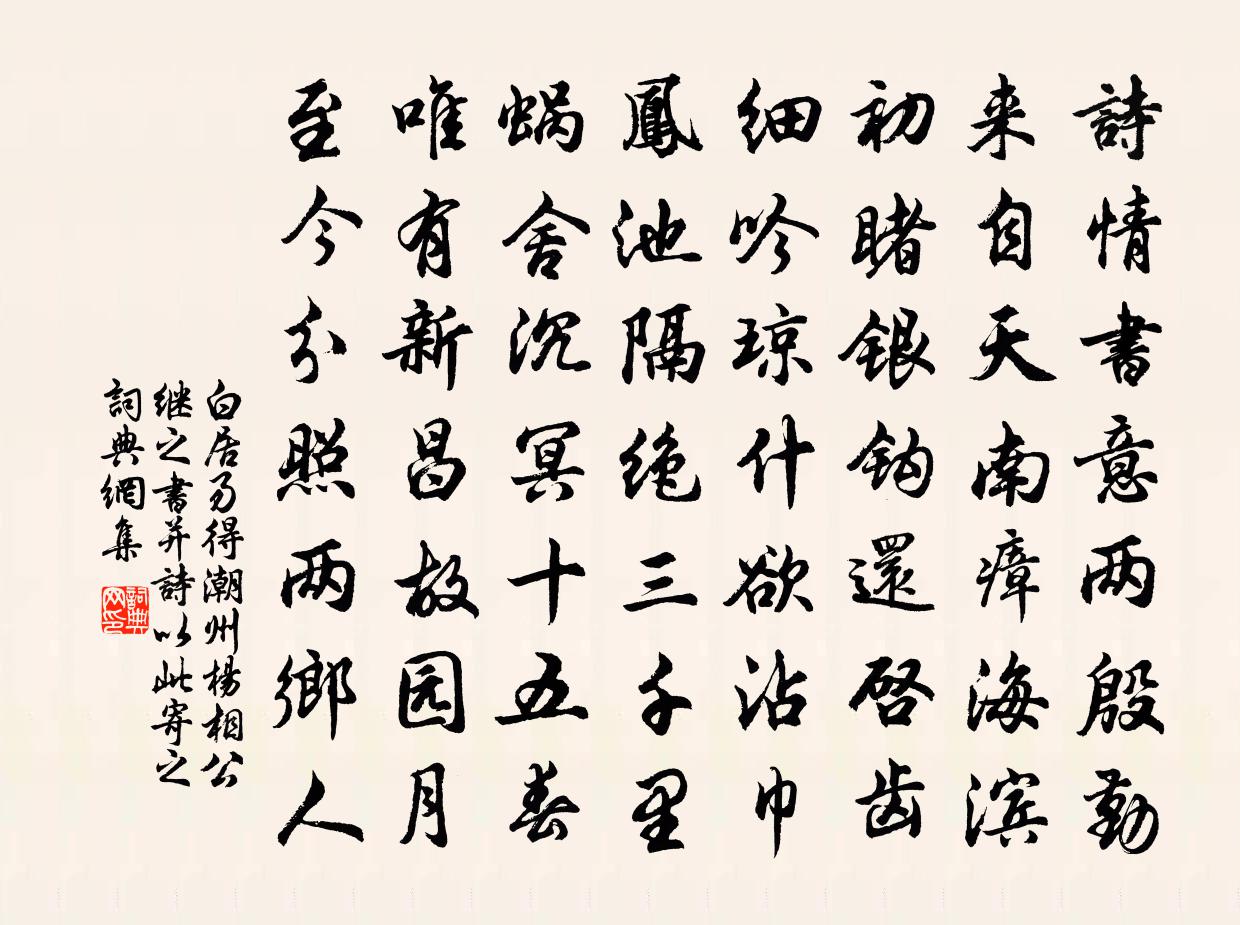 詩情書意两殷勤
来自天南瘴海滨
初睹銀钩還啓齿
细吟琼什欲沾巾
鳳池隔绝三千里
蜗舍沉冥十五春
唯有新昌故园月
至今分照两鄉人
白居易得潮州楊相公
继之書并詩以此寄之
詞典網集
詞典网印